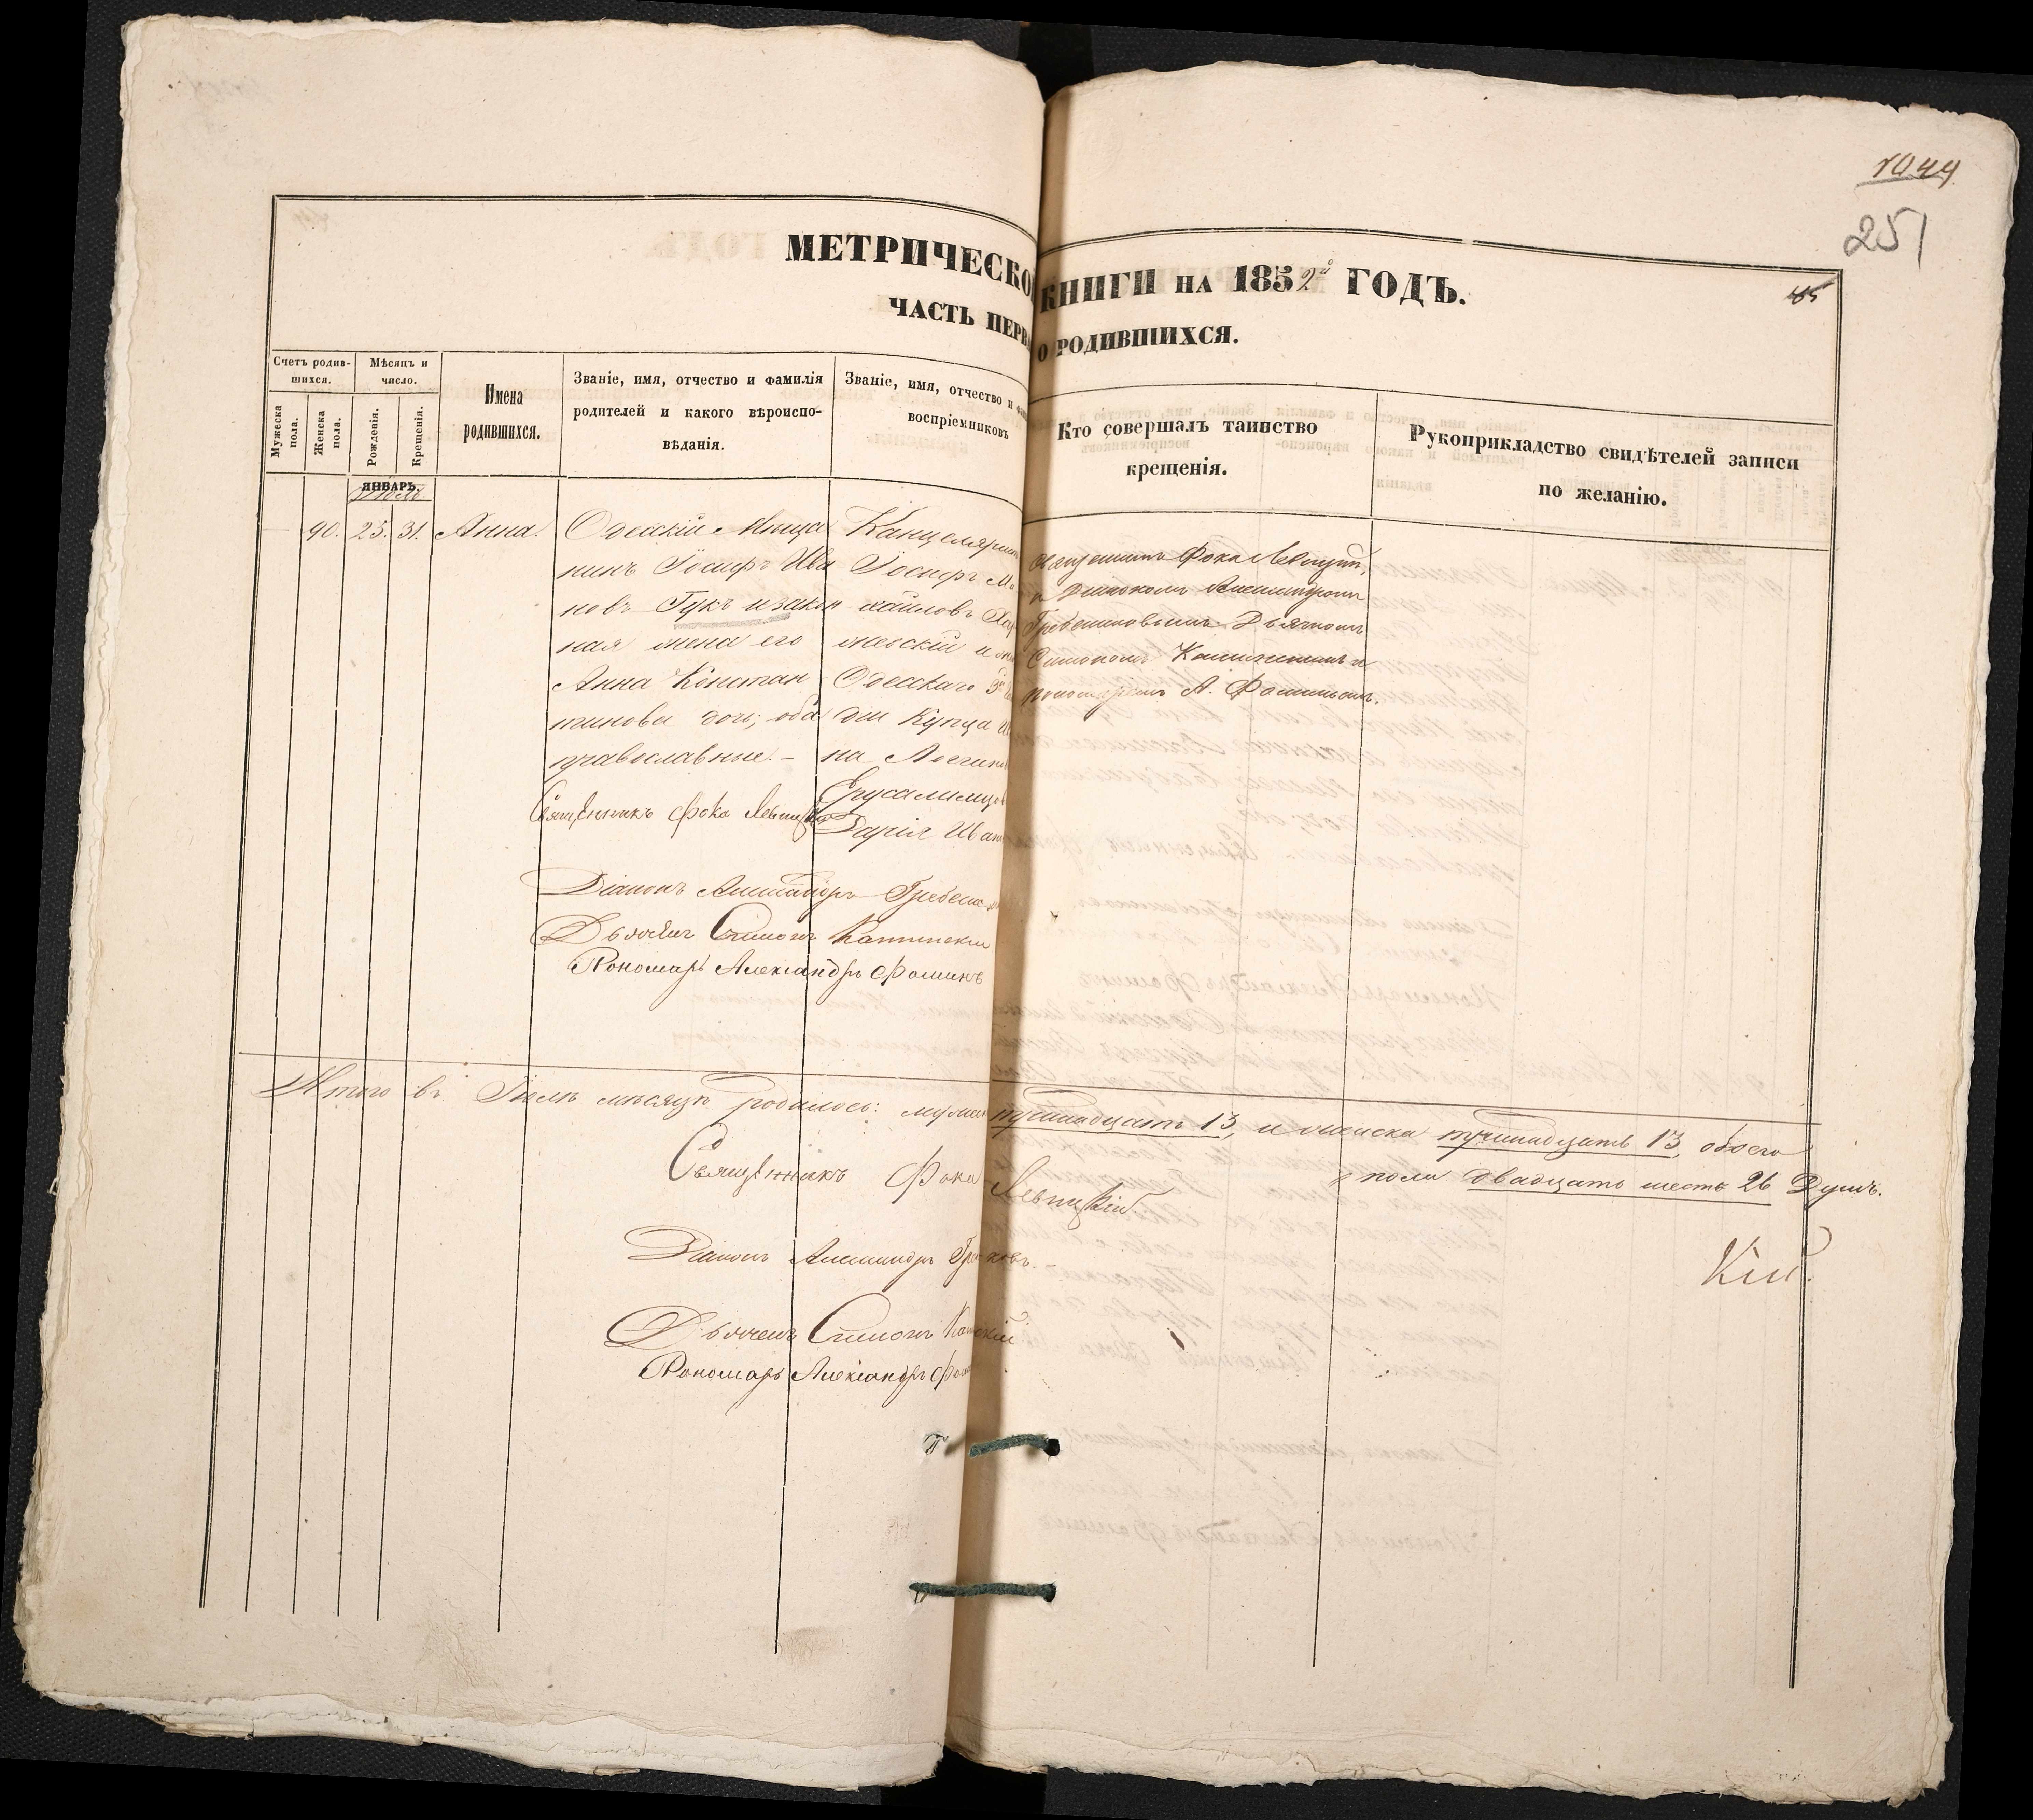 1044
251
МЕТРИЧЕСКО КНИГИ НА 1852й ГОДЪ.
ЧАСТЬ ПЕРВА О РОДИВШИХСЯ.
Счетъ родив-
шихся.
Мужеска
пола.
Женска
пола.
Мѣсяцъ и
число.
Рожденія.
Крещенія.
Имена
родившихся.
Званіе, имя, отчество и фамилія
родителей и какого вѣроиспо-
вѣданія.
Званіе, имя, отчество и фам
воспріемниковъ
Кто совершалъ таинство
крещенія.
Рукоприкладство свидѣтелей записи
по желанію.
ЯНВАРЬ.
Іюль
90. 25. 31. Анна.
Одесскій Мѣща
нинъ Іосифъ Ива
новъ Гукъ и закон
ная жена его
Анна Констан
тинова дочь; оба
православные. –
Канцелярист
Іосифъ Ми
хайловъ
жевскій и
Одесскаго 3й
діи Купца И
на Логгино
Ерусалимцов
Дарія Иван
Священникъ Фока Левицкій,
и Діакономъ Александромъ
Гребенниковымъ Дьячкомъ
Симономъ Каминскимъ и
пономаремъ А. Фоминымъ.
Священникъ Фока Левицкій
Діаконъ Александръ Гребенн
Дьячекъ Симонъ Каминскій
Пономарь Александръ Фоминъ
Итого въ Іюлѣ мѣсяцѣ родилось: мужеск тринадцать 13, и женска тринадцать 13, обоего
пола двадцать шесть 26 Душъ.
Священникъ Фока Левицкій.
Діаконъ Александръ Гре ковъ. –
Кій.
Дьячекъ Симонъ Ка скій
Пономарь Александръ Фом